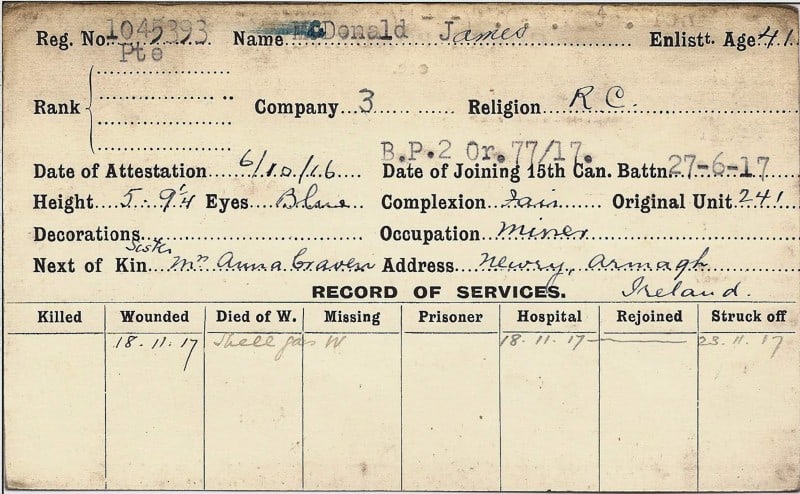 Reg. No. 1045393 Name McDonald James Enlistt. Age 41
Pte
Rank Company 3 Religion R.C.
B.P.2 Or. 77/17.
Date of Attestation 6/10/16 Date of Joining 15th Can. Battn. 27-6-17
Height 5. 9¼ Eyes Blue Complexion Fair Original Unit 241
Decorations Occupation Miner
Sister
Next of Kin Mrs Anna Craven Address Newry, Armagh
Ireland.
RECORD OF SERVICES.
Killed Wounded Died of W. Missing Prisoner Hospital Rejoined Struck off
18. 11. 17 Shell gas W 18. 11. 17 23. 11. 17